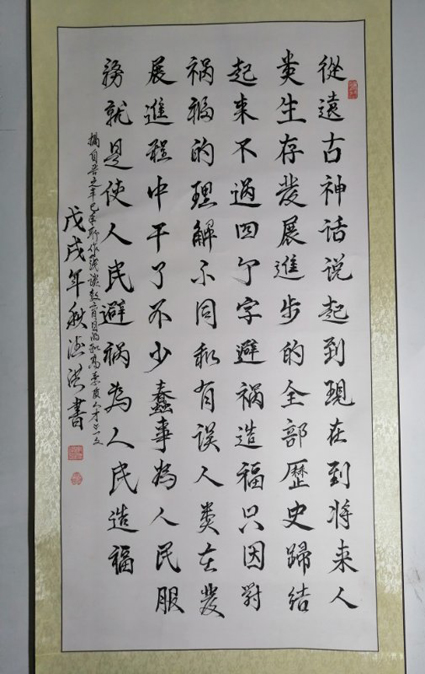 從遠古神话说起到現在到将来人
类生存發展進步的全部歷史歸结
起来不過四个字避祸造福只因對
祸福的理解不同和有误人类在發
展進程中干了不少蠢事為人民服
務就是使人民避祸為人民造福
摘自吾之辛巳年所作
戊戌年秋 洪書